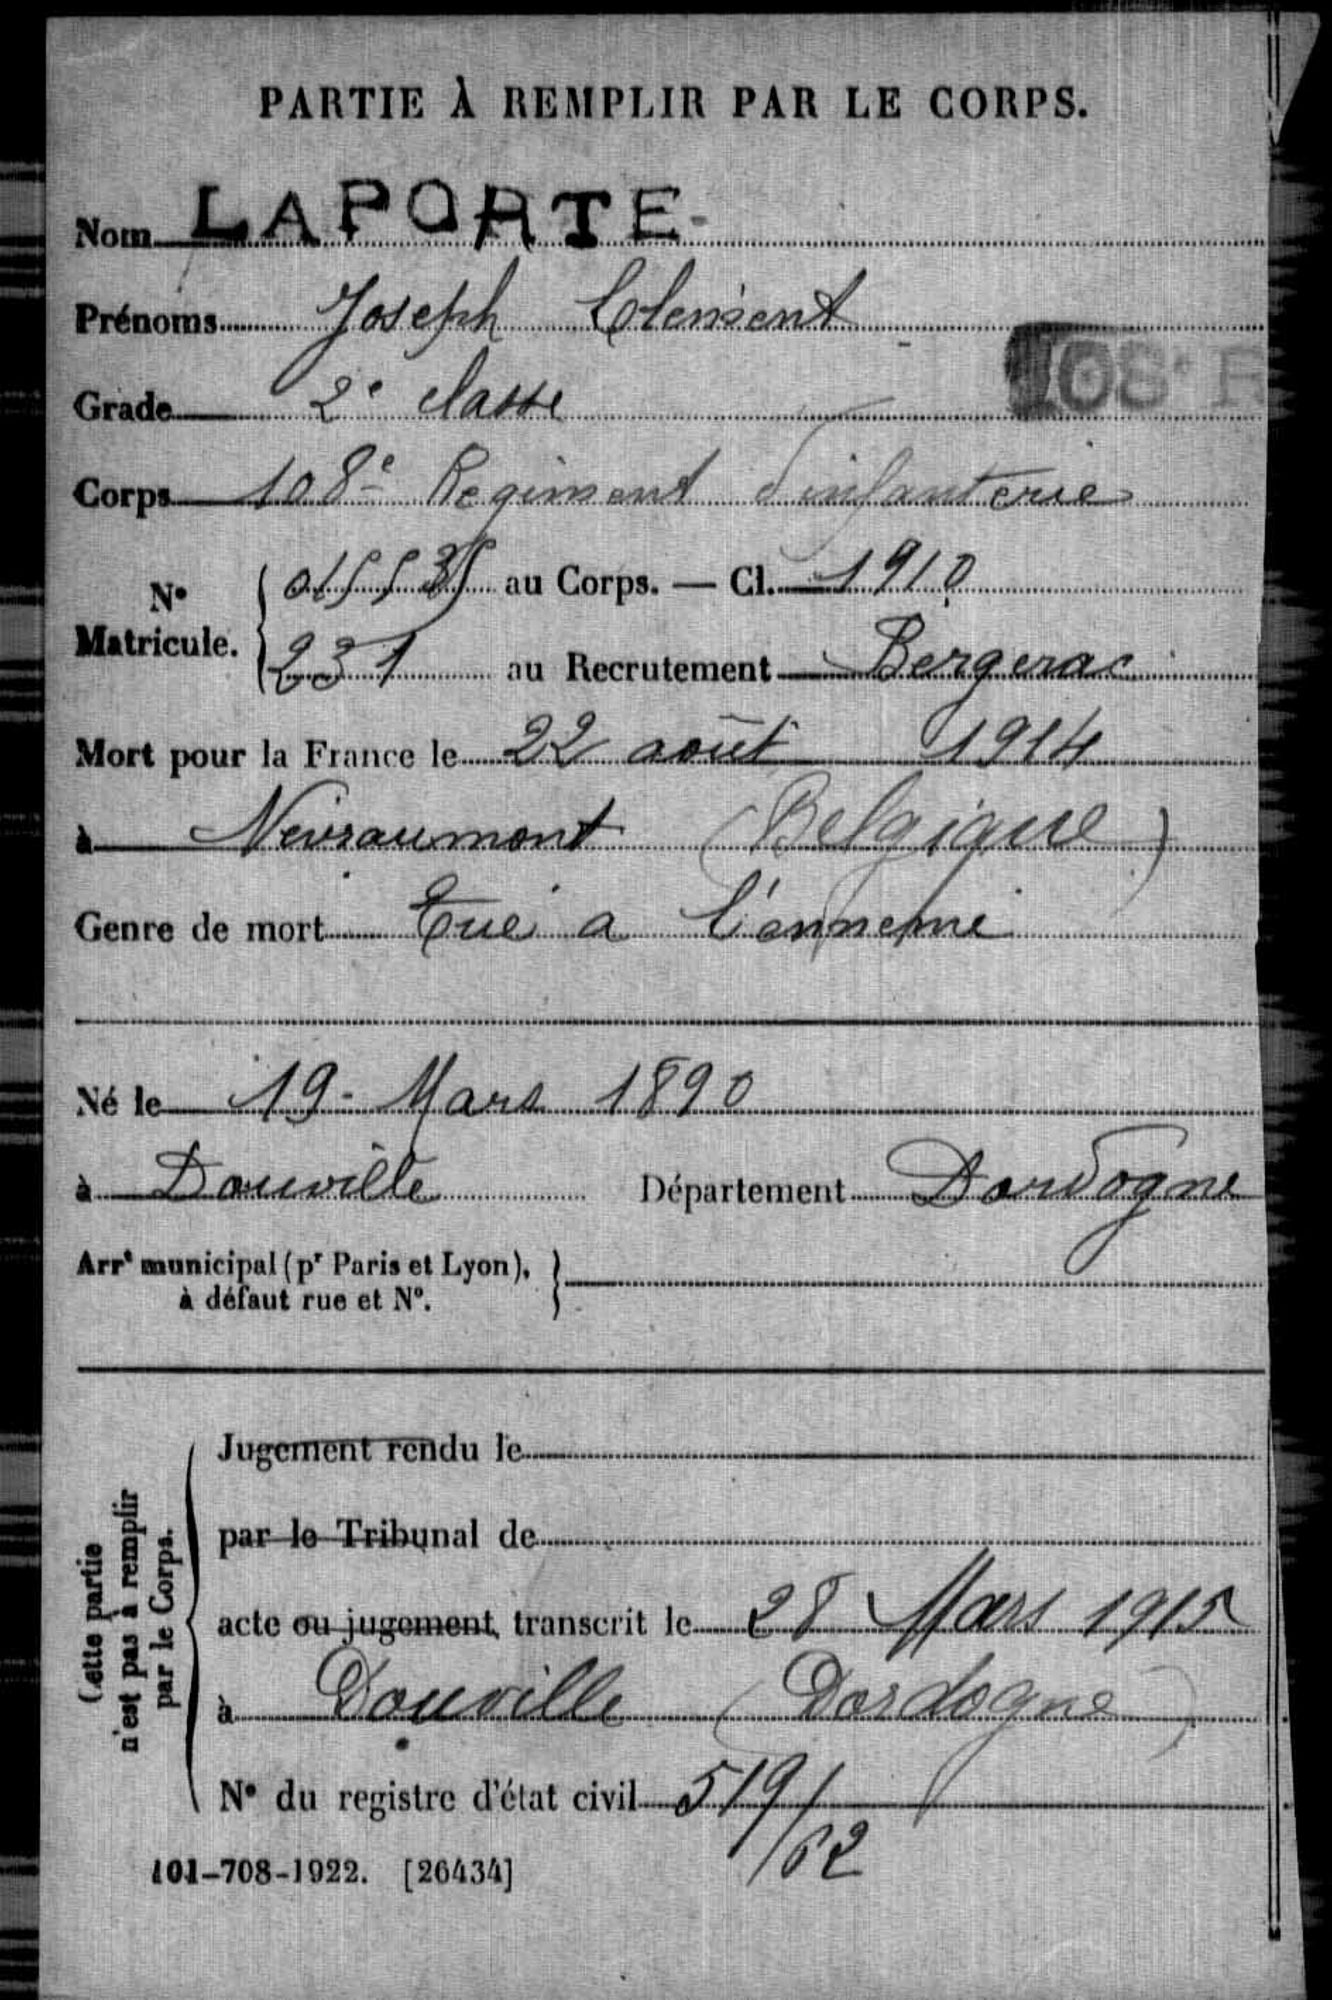 PARTIE À REMPLIR PAR LE CORPS.
Nom LAPORTE
Prénoms Joseph Clément
108e R
Grade 2e classe
Corps 108e Régiment d'infanterie
N° Matricule. au Corps. — Cl. 1910
231 au Recrutement Bergerac
Mort pour la France le 22 août 1914
à Nevraumont (Belgique)
Genre de mort Tué a l'ennemi
Né le 19 - Mars 1890
à Douville Département Dordogne
Arrt municipal (pr Paris et Lyon),
à défaut rue et N°.
Cette partie
n'est pas à remplir
par le Corps.
Jugement rendu le
par le Tribunal de
acte ou jugement transcrit le 28 Mars 1915
à Douville (Dordogne)
N° du registre d'état civil 519/62
101-708-1922. [26434]